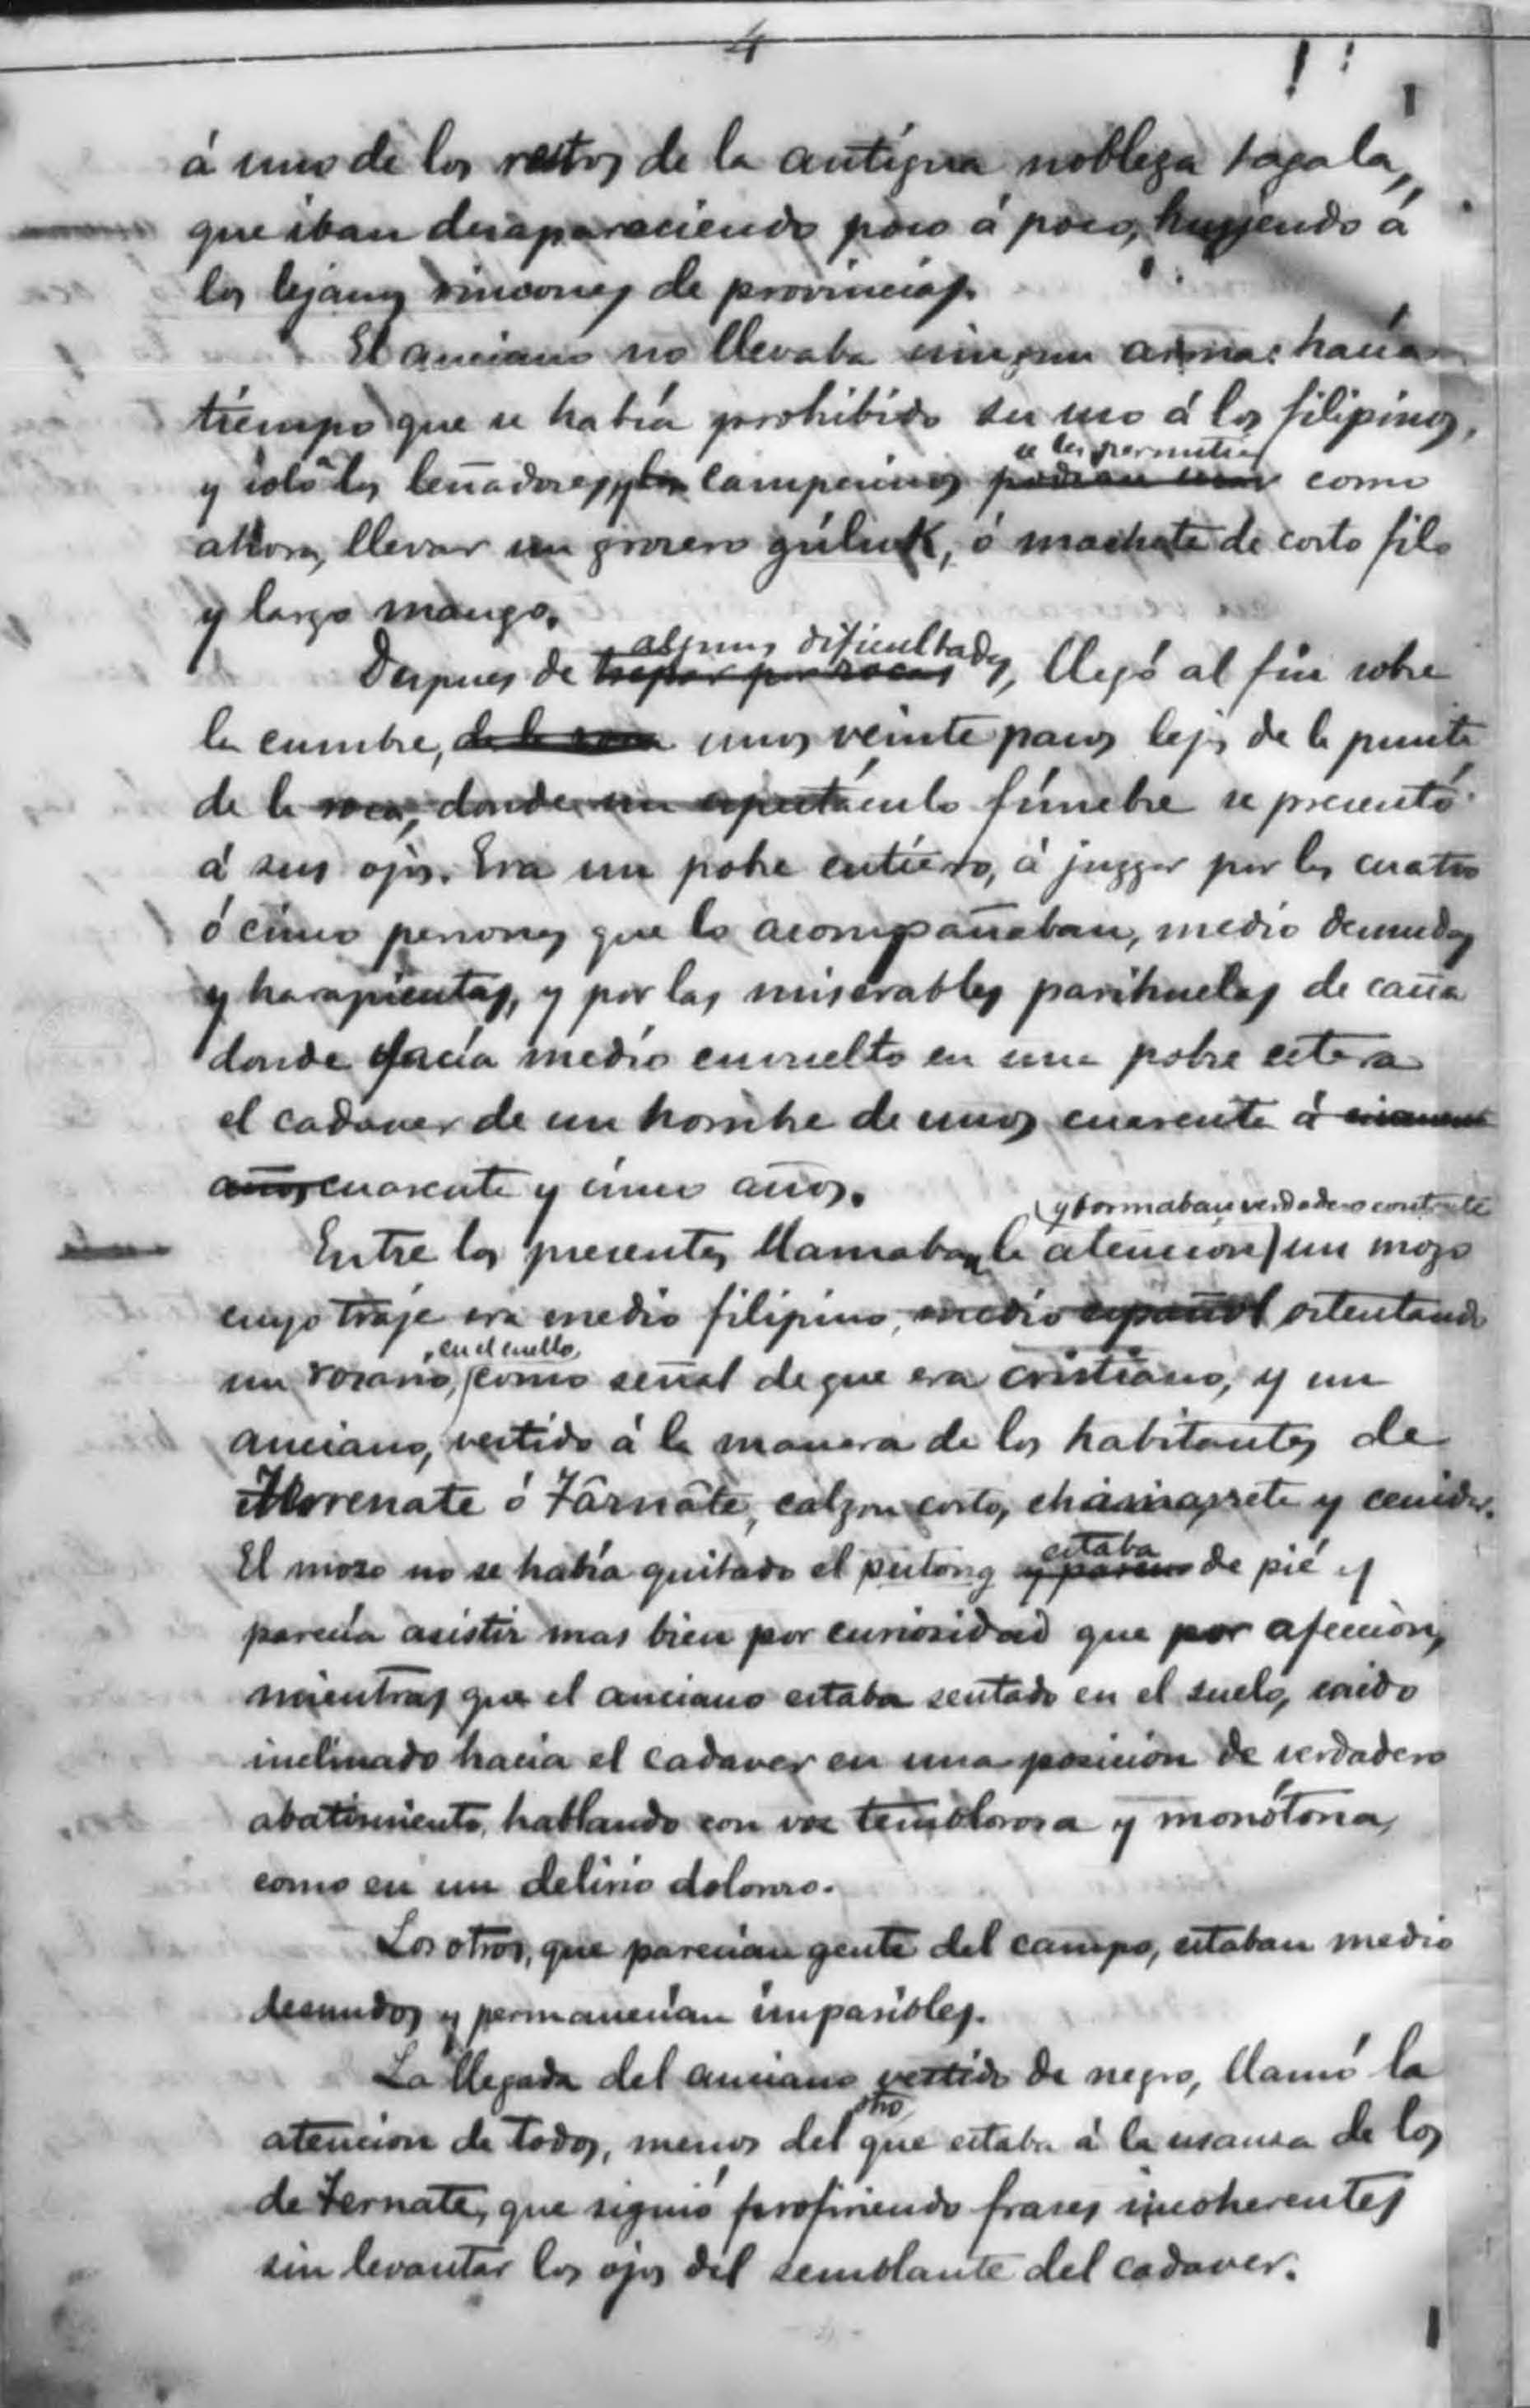 4
á uno de los restos de la antígua nobleza tagala,
que iban desapareciendo poco á poco, huyendo á
los lejanos rincones de provincias.
El anciano no llevaba ningun arma: hacía
tiempo que se había prohibido su uso á los filipinos,
se les permitía
y solo los leñadores y los campesinos podían usar como
ahora, llevar un grosero gúluk, ó machete de corto filo
y largo mango.
algunas dificultades
Despues de trepar por rocas, llegó al fin sobre
la cumbre, de la roca unos veinte pasos lejos de la punta
de la roca, donde un espectáculo fúnebre se presentó
á sus ojos. Era un pobre entierro, á juzgar por las cuatro
ó cinco personas que lo acompañaban, medio desnudas
y harapientas, y por las miserables parihuelas de caña
donde yacía medio envuelto en una pobre estera
el cadaver de un hombre de unos cuarenta á cincuenta
años cuarenta y cinco años.
(y formaban verdadero contraste
Entre los presentes llamaban la atencion) un mozo
cuyo traje era medio filipino, medio español ostentando
, en el cuello,
un rosario, como señal de que era cristiano, y un
anciano, vestido á la manera de los habitantes de
Morenate ó Tárnáte, calzon corto, chamarreta y ceñidor.
estaba
El mozo no se había quitado el putong y parecio de pié y
parecía asistir mas bien por curiosidad que por afeccion,
mientras que el anciano estaba sentado en el suelo, caido
inclinado hacia el cadaver en una posicion de verdadero
abatimiento, hablando con voz temblorosa y monótona,
como en un delirio doloroso.
Los otros, que parecian gente del campo, estaban medio
desnudos y permanecían impasibles.
La llegada del anciano vestido de negro, llamó la
otro
atencion de todos, menos del que estaba á la usanza de los
de Ternate, que siguió profiriendo frases incoherentes
sin levantar los ojos del semblante del cadaver.